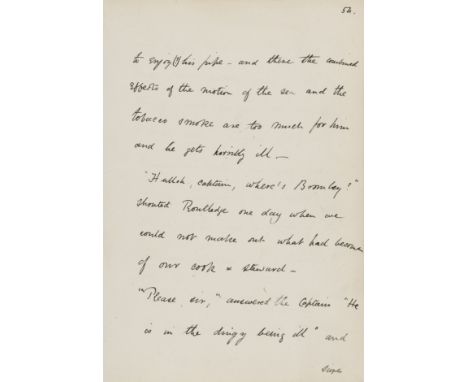 54.
to enjoy(!) his pipe – and there the combined
effects of the motion of the sea and the
tobacco smoke are too much for him
and he gets horribly ill –
"Hullsh, captain, where's Bromley?"
shouted Routledge one day when we
could not make out what had become
of our cook & steward –
"Please, sir," answered the Captain "He
is in the dingy being ill" and